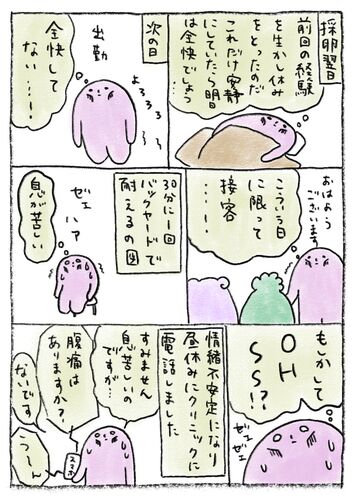 採卵翌日
前回の経験
を生かし休み
をとったのだ
これだけ安静
にしていたら明日
は全快でしょう
次の日
出勤
よろろろ
全快して
ない…!
おはよう
ございます
こういう日
に限って
接客
・・・
30分に1回
バックヤードで
耐えるの図
ゼェ
ハァ
息が苦しい
もしかして
OH
SS!?
ゼェ
ゼェ
情緒不安定になり
昼休みにクリニックに
電話しました
すみません
息苦しいの
ですが…
腹痛は
ありますか?
ないです
うーん